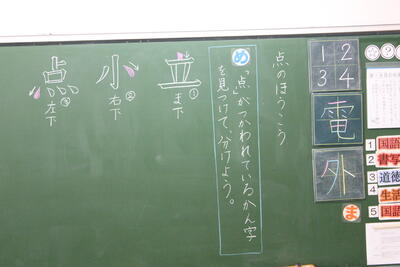 点のほうこう
め 「点」がつかわれているかん字
を見つけて、分けよう。
立
①
ま下
小
②
右下
点
③
左下
1 2
3 4
電
外
ま
1 国語
2 書写
3 道徳
4 生活
5 国語